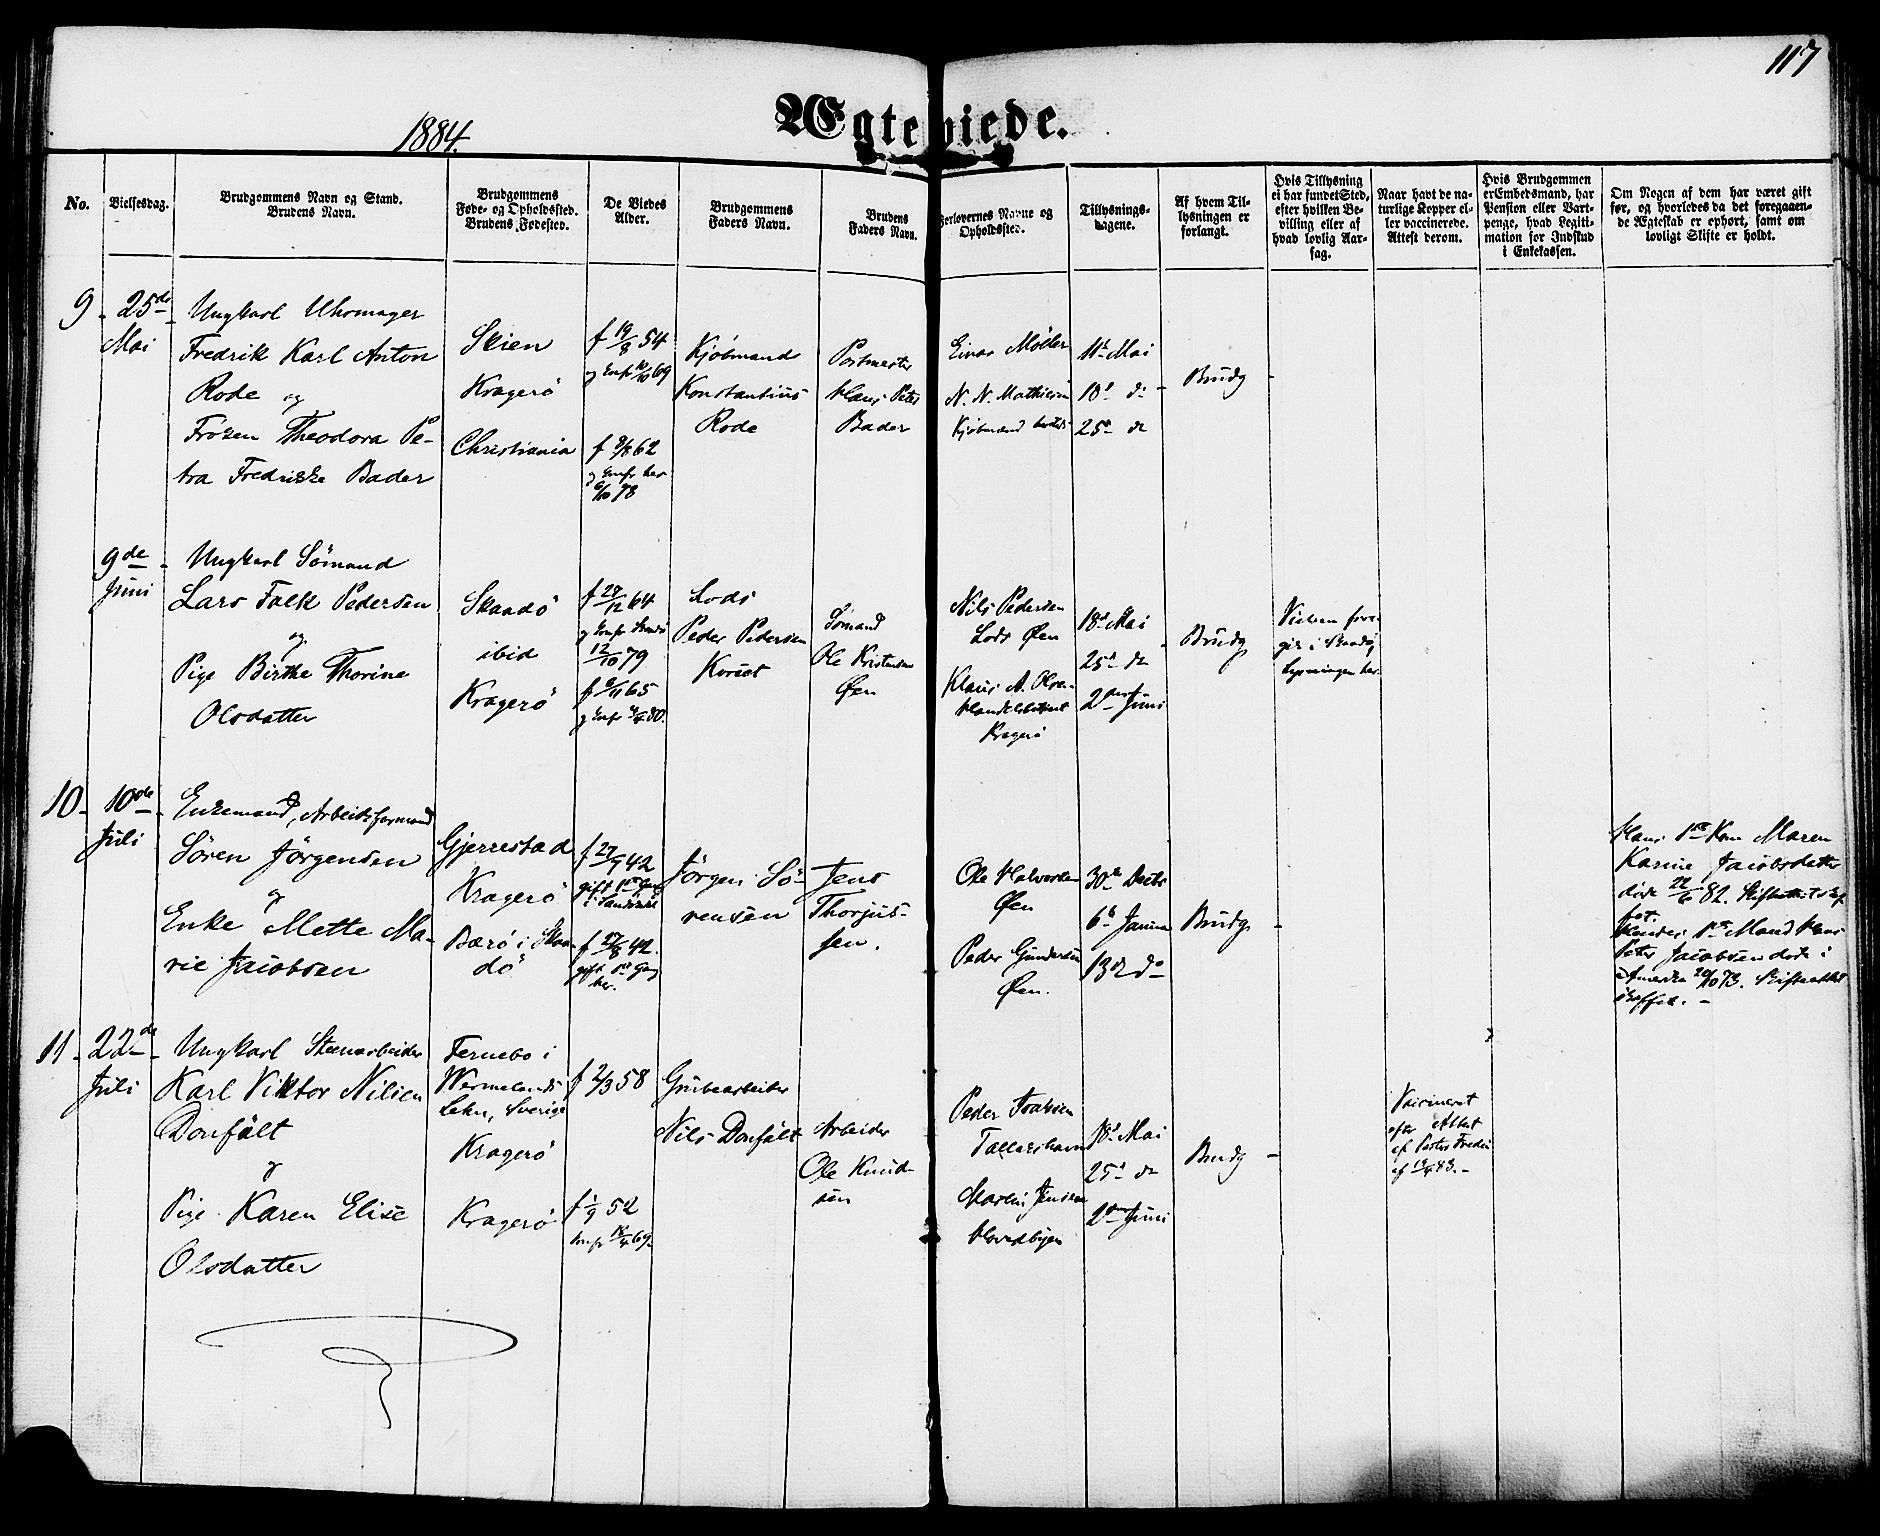 117
1884.
Ægteviede.
No.
Vielsesdag.
Brudgommens Navn og Stand.
Brudens Navn.
Brudgommens
Føde- og Opholdssted.
Brudens Fødested.
De Viedes
Alder.
Brudgommens
Faders Navn.
Brudens
Faders Navn.
Forlovernes Navne og
Opholdssted.
Tillysnings-
dagene.
Af hvem Til-
lysningen er
forlangt.
Hvis Tillysning
ei har fundet Sted,
efter hvilken Be-
villing eller af
hvad lovlig Aar-
sag.
Naar havt de na-
turlige Kopper el-
ler vaccinerede.
Attest derom.
Hvis Brudgommen
er Embedsmand, har
Pension eller Vart-
penge, hvad Legiti-
mation for Indskud
i Enkekassen.
Om Nogen af dem har været gift
før, og hvorledes da det foregaaen-
de Ægteskab er ophørt, samt om
lovligt Skifte er holdt.
9 - 25de
Mai
Ungkarl Uhrmager
Fredrik Karl Anton
Rode og
Frøken Theodora Pe-
tra Fredrikke Bader
Skien
Kragerö
Christiania
f 19/8 54
og Conf 10/10 69
f 9/8 62
og Conf her
6/10 78
Kjöbmand
Konstantius
Rode
Postmester
Hans Peter
Bader
Einar Möller
N. N. Mathiesen
Kjöbmænd
11te Mai
18de do
25de do
Brudg -
9de
Juni
Ungkarl Sömand
Lars Falk Pedersen
og
Pige Birthe Thorine
Olsdatter
Skaadö
ibid
Kragerö
f 27/12 64
og Conf
12/10 79
f 6/11 65
og Conf 4/4 80.
Lods
Peder Pedersen
Sömand
Ole Kristensen
Øen
Nils Pedersen
Lods Øen
Klaus A. Olsen
Kragerö
18de Mai
25de do
2den Juni
Brudg
Vielsen fore-
gik i Skaadö,
Lysningen her.
10 - 10de
Juli
Enkemand, Arbeidsformand
Sören Jörgensen
og
Enke Mette Ma-
rie Jacobsen
Gjerrestad
Kragerö
Barö i Skaa-
dö
f 27/9 42
gift 1ste Gang
i Sandökel
f 27/8 42.
gift 1ste Gang
her.
Jörgen Sö-
rensen
Jens
Thorjus-
sen.
Ole Halvorsen
Øen
Peder Gundersen
Øen.
30te Decbr
6te Januar
13de do
Brudg -
Hans 1ste Kone Maren
Karine Jacobsdatter
döde 22/6 82.
Hendes 1ste Mand Hans
Peter Jacobsen döde i
Amerika 20/10 73. Skifteattest
skaffet. -
11 - 22de -
Juli
Ungkarl Steenarbeider
Karl Viktor Nilsen
Donfält
og
Pige Karen Elise
Olsdatter
Fernebo i
Wermelands
Lehn, Sverige
Kragerö
Kragerö
f 2/3 58
f 1/9 52
Conf 18/4 69
Grubearbeider
Nils Donfält
Arbeider
Ole Knud-
sen
Peder Isaksen
Tallakshavn
Martin Jensen
Hovedbyen
18de Mai
25de do
2den Juni
Brudg -
Vaccineret
efter Attest
af Pastor